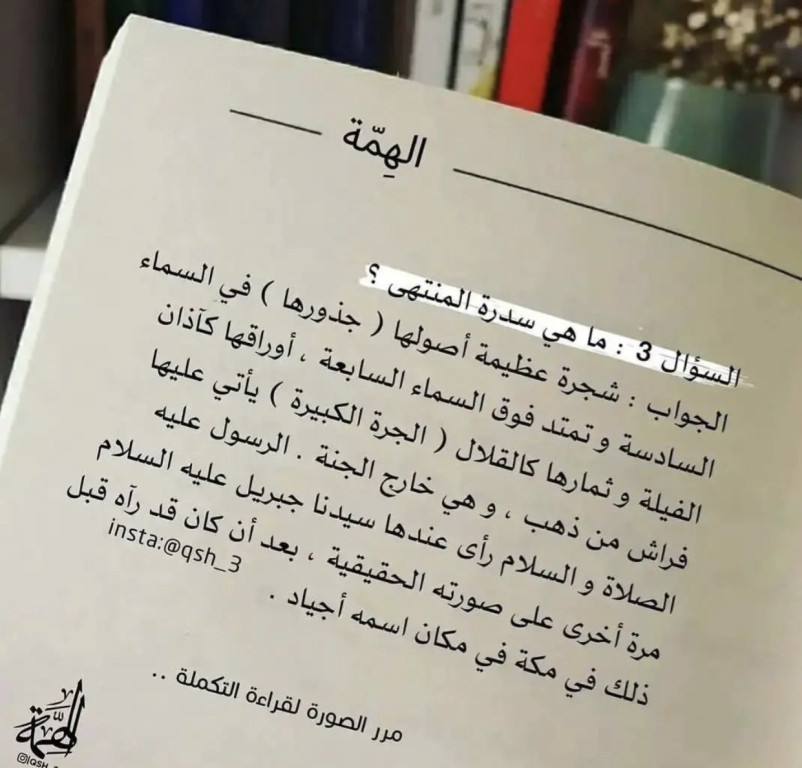 الهِمّة
السؤال 3 : ما هي سدرة المنتهى ؟
الجواب : شجرة عظيمة أصولها ( جذورها ) في السماء
السادسة و تمتد فوق السماء السابعة ، أوراقها كآذان
الفيلة و ثمارها كالقلال ( الجرة الكبيرة ) يأتي عليها
فراش من ذهب ، و هي خارج الجنة . الرسول عليه
الصلاة و السلام رأى عندها سيدنا جبريل عليه السلام
مرة أخرى على صورته الحقيقية ، بعد أن كان قد رآه قبل
ذلك في مكة في مكان اسمه أجياد .
insta:@qsh_3
مرر الصورة لقراءة التكملة ..
الهمَّة